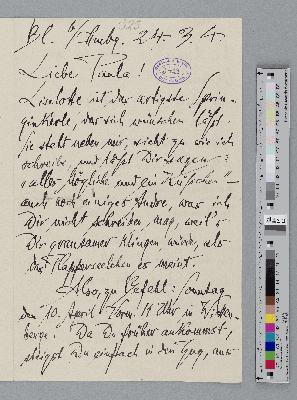 Bl. b/ Hmbg. 24–3. 4
Liebe Paula!
Liselotte ist das artigste Sprin-
ginkerle, das sich wünschen läßt.
Sie steht neben mir, sieht zu wie ich
schreibe, und läßt Dir sagen:
"alles Mögliche und ein Küßchen" –
auch noch einiges Andre, was ich
Dir nicht schreiben mag, weil's
Dir grausamer klingen würde, als
das Plapperseelchen es meint.
Also, zu Befehl: Sonntag
den 10. April Vorm. 11 Uhr in Witten-
berge. Da Du früher ankommst,
steigst Du einfach in den Zug, aus